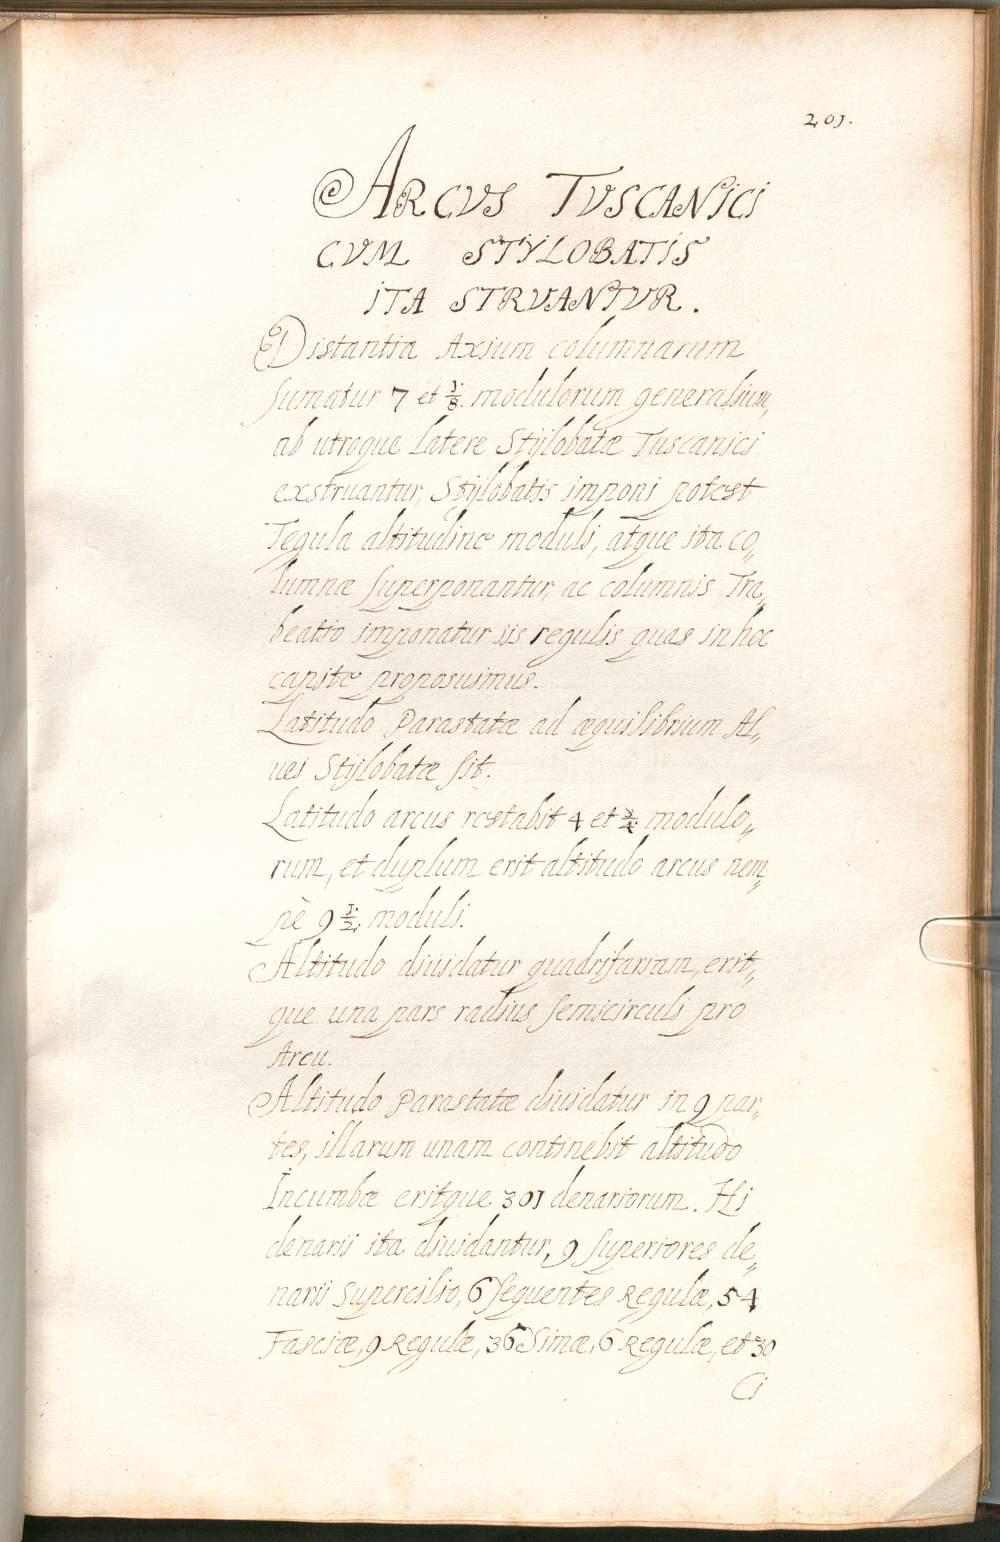 201.
ARCVS TVSCANICI
CVM STYLOBATIS
ITA STRVANTVR.
Distantia Axium columnarum
sumatur 7 et 1/8. modulorum generalium,
ab utroque Latere Stÿlobatæ Tuscanici
exstruantur, Stÿlobatis imponi potest
Tegula altitudine moduli, atque ita co„
lumnæ superponantur, ac columnis Tra„
beatio imponatur iis regulis quas in hoc
capite proposuimus.
Latitudo Parastatæ ad æquilibrium Al„
vei Stÿlobatæ sit.
Latitudo arcus restabit 4 et 3/4. modulo„
rum, et duplum erit altitudo arcus nem„
pè 9 1/2. moduli.
Altitudo diuidatur quadrifariam, erit„
que una pars radius semicirculi pro
Arcu.
Altitudo Parastatæ diuidatur in 9 par„
tes, illarum unam continebit altitudo
Incumbæ eritque 301 denariorum. Hi
denarii ita diuidantur, 9 superiores de„
narii Supercilio, 6 sequentes Regulæ, 54
Fasciæ, 9 Regulæ, 36 Simæ, 6 Regulæ, et 30
Ci